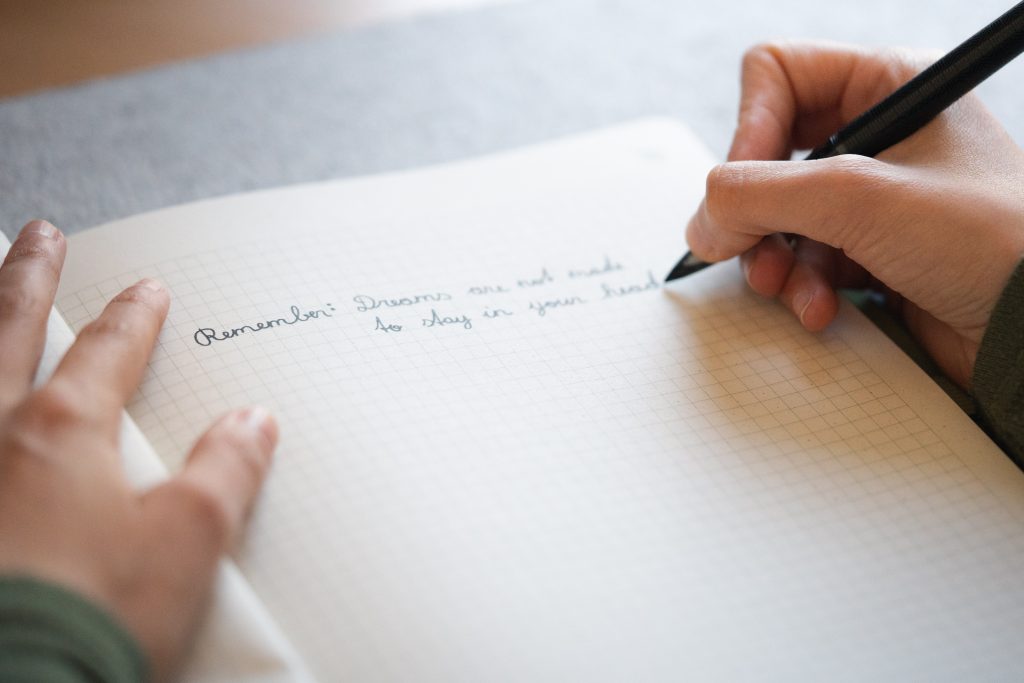 Remember: Dreams are not made
to stay in your head